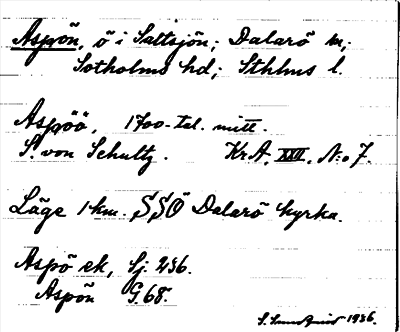 Aspön, ö i Saltsjön; Dalarö sn;
Sotholms hd; Sthlms l.
Aspöö, 1700-tal. mitt.
S. von Schultz. KrA. XXII. N:o 7.
Läge 1 km. SSÖ Dalarö kyrka.
Aspö ek, Sj. 236.
Aspön G. 68.
1936.